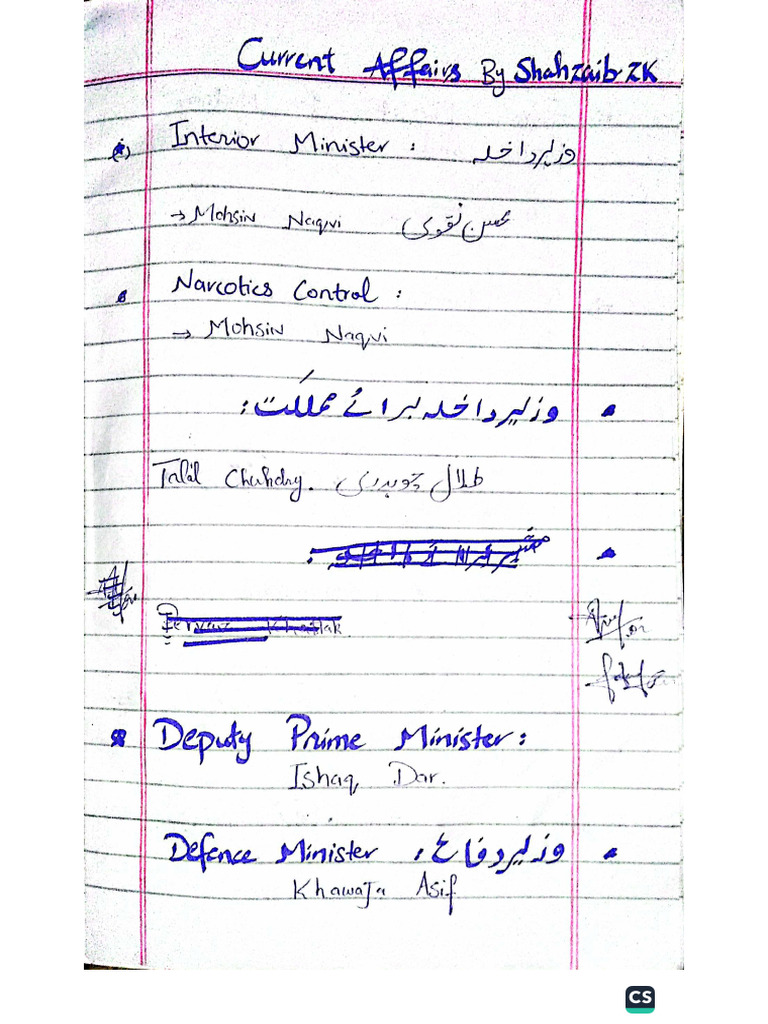 Current Affairs By Shahzaib ZK
Interior Minister : وزیر داخلہ
→ Mohsin Naqvi محسن نقوی
Narcotics Control :
→ Mohsin Naqvi
وزیر داخلہ برائے مملکت :
Talal Chuhdry. طلال چوہدری
Pervaiz Khattak.
Deputy Prime Minister :
Ishaq Dar.
Defence Minister وزیر دفاع :
Khawaja Asif
CS